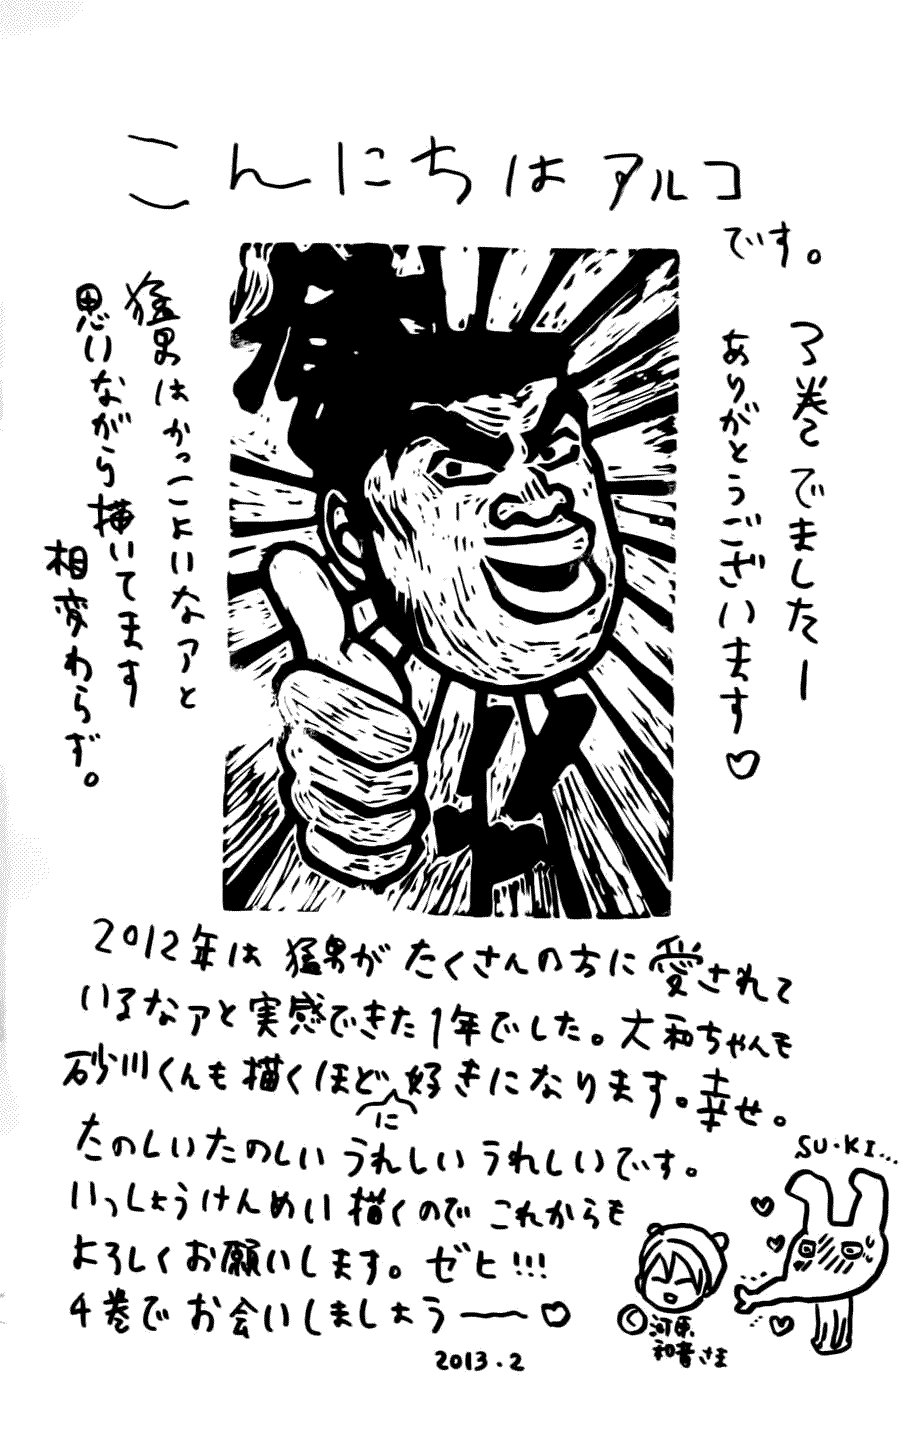 こんにちは アルコ
です。
3巻でましたー
ありがとうございます♡
猛男はかっこよいなァと
思いながら描いてます
相変わらず。
2012年は 猛男が たくさんの方に 愛されて
いるなァと実感できた1年でした。大和ちゃんも
砂川くんも描くほどに好きになります。幸せ。
たのしいたのしい うれしい うれしいです。
いっしょうけんめい 描くので これからも
よろしく お願いします。ゼヒ!!!
4巻で お会いしましょうー〜♡
2013.2
SU・KI...
©河原
和音さま